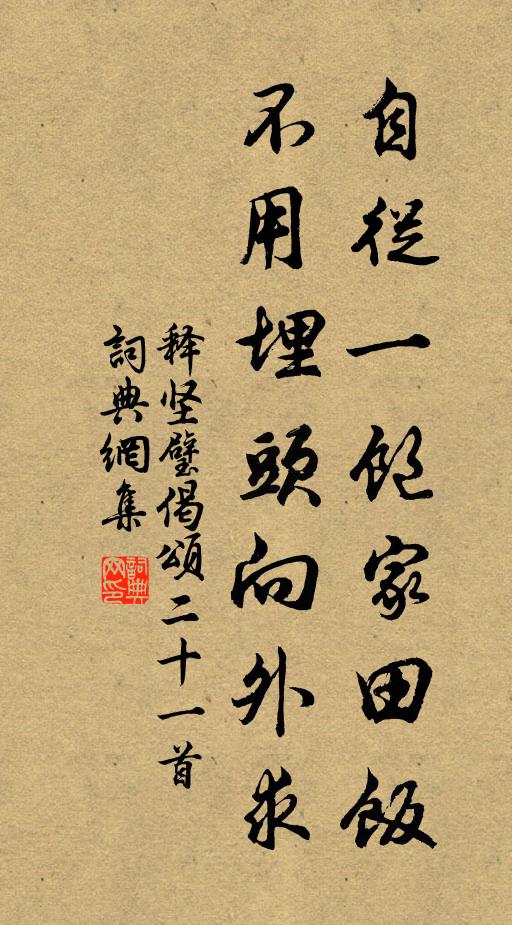 自從一飽家田飯
不用埋頭向外求
释坚璧偈頌二十一首
詞典網集
詞典网印